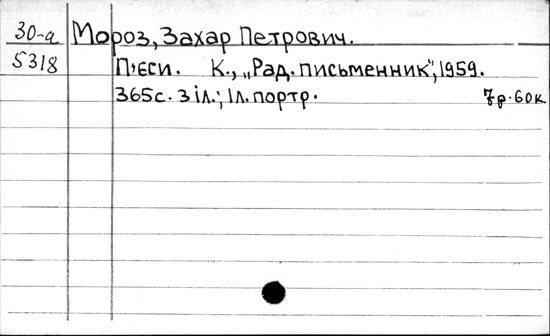 30-а Мороз, Захар Петрович.
5318 П'єси. К., „Рад. письменник", 1959.
365с. з іл.; іл. портр. 7р. 60к.